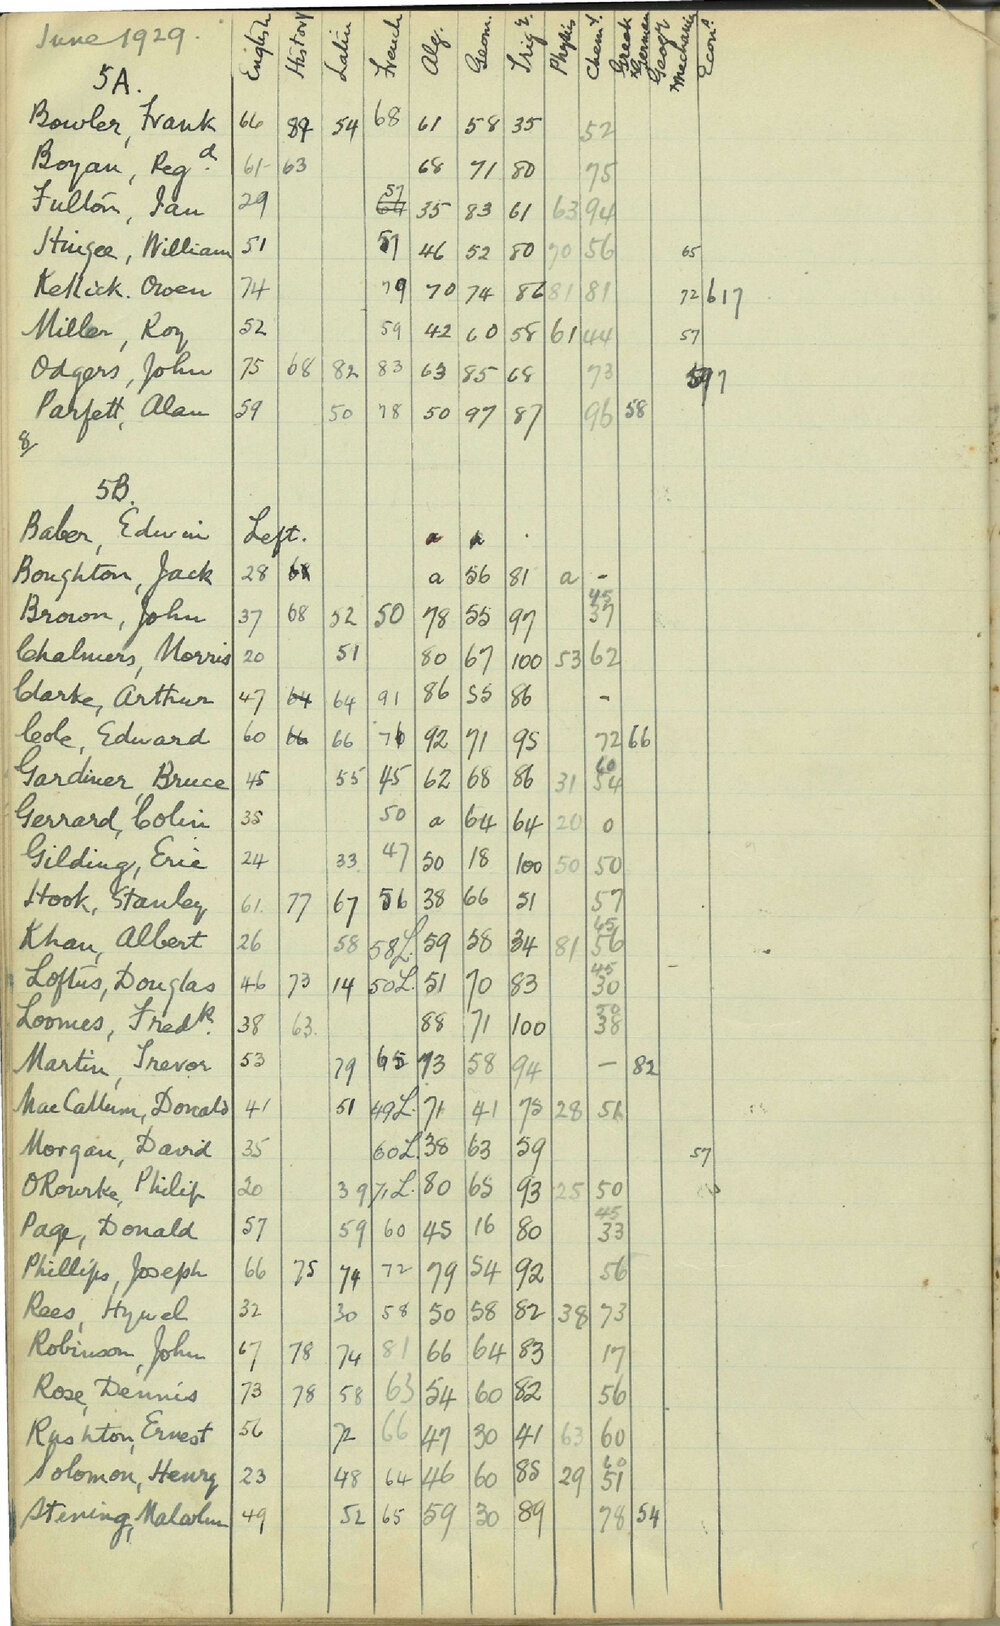 June 1929.
English History Latin French Alg. Geom. Trig. Physics Chemy. Greek German Geog Mechanics Econ.
5A.
Bowler, Frank 66 54 68 61 58 35 52
Boyan, Regd. 61 63 68 71 80 75
Fulton, Ian 29 57 35 83 61 63 94
Hingee, William 51 51 46 52 80 70 56 65
Kellick. Owen 74 79 70 74 86 81 81 72 617
Miller, Roy 52 59 42 60 58 61 44 57
Odgers, John 75 68 82 83 63 85 68 73
Parfett, Alan 59 50 78 50 97 87 96 58
8
5B.
Baber, Edwin Left. a a
Boughton, Jack 28 68 a 56 81 a -
Brown, John 37 68 52 50 78 55 97 45 37
Chalmers, Morris 20 51 80 67 100 53 62
Clarke, Arthur 47 64 64 91 86 55 86 -
Cole, Edward 60 66 66 76 92 71 95 72 66
Gardiner, Bruce 45 55 45 62 68 86 31 60 54
Gerrard, Colin 35 50 a 64 64 20 0
Gilding, Eric 24 33 47 50 18 100 50 50
Hook, Stanley 61 77 67 56 38 66 51 57
Khan, Albert 26 58 58L. 59 58 34 81 65 56
Loftus, Douglas 46 73 14 50L. 51 70 83 45 30
Loomes, Fredk. 38 63. 88 71 100 50 38
Martin, Trevor 53 79 65 73 58 94 - 82
MacCallum, Donald 41 51 49L. 71 41 75 28 51
Morgan, David 35 60L. 38 63 59 57
ORourke, Philip 20 39 71L. 80 65 93 25 50
Page, Donald 57 59 60 45 16 80 45 33
Phillips, Joseph 66 75 74 72 79 54 92 56
Rees, Hywel 32 30 58 50 58 82 38 73
Robinson, John 67 78 74 81 66 64 83 17
Rose, Dennis 73 78 58 63 54 60 82 56
Rushton, Ernest 56 72 66 47 30 41 63 60
Solomon, Henry 23 48 64 46 60 85 29 60 51
Stening, Malcolm 49 52 65 59 30 89 78 54